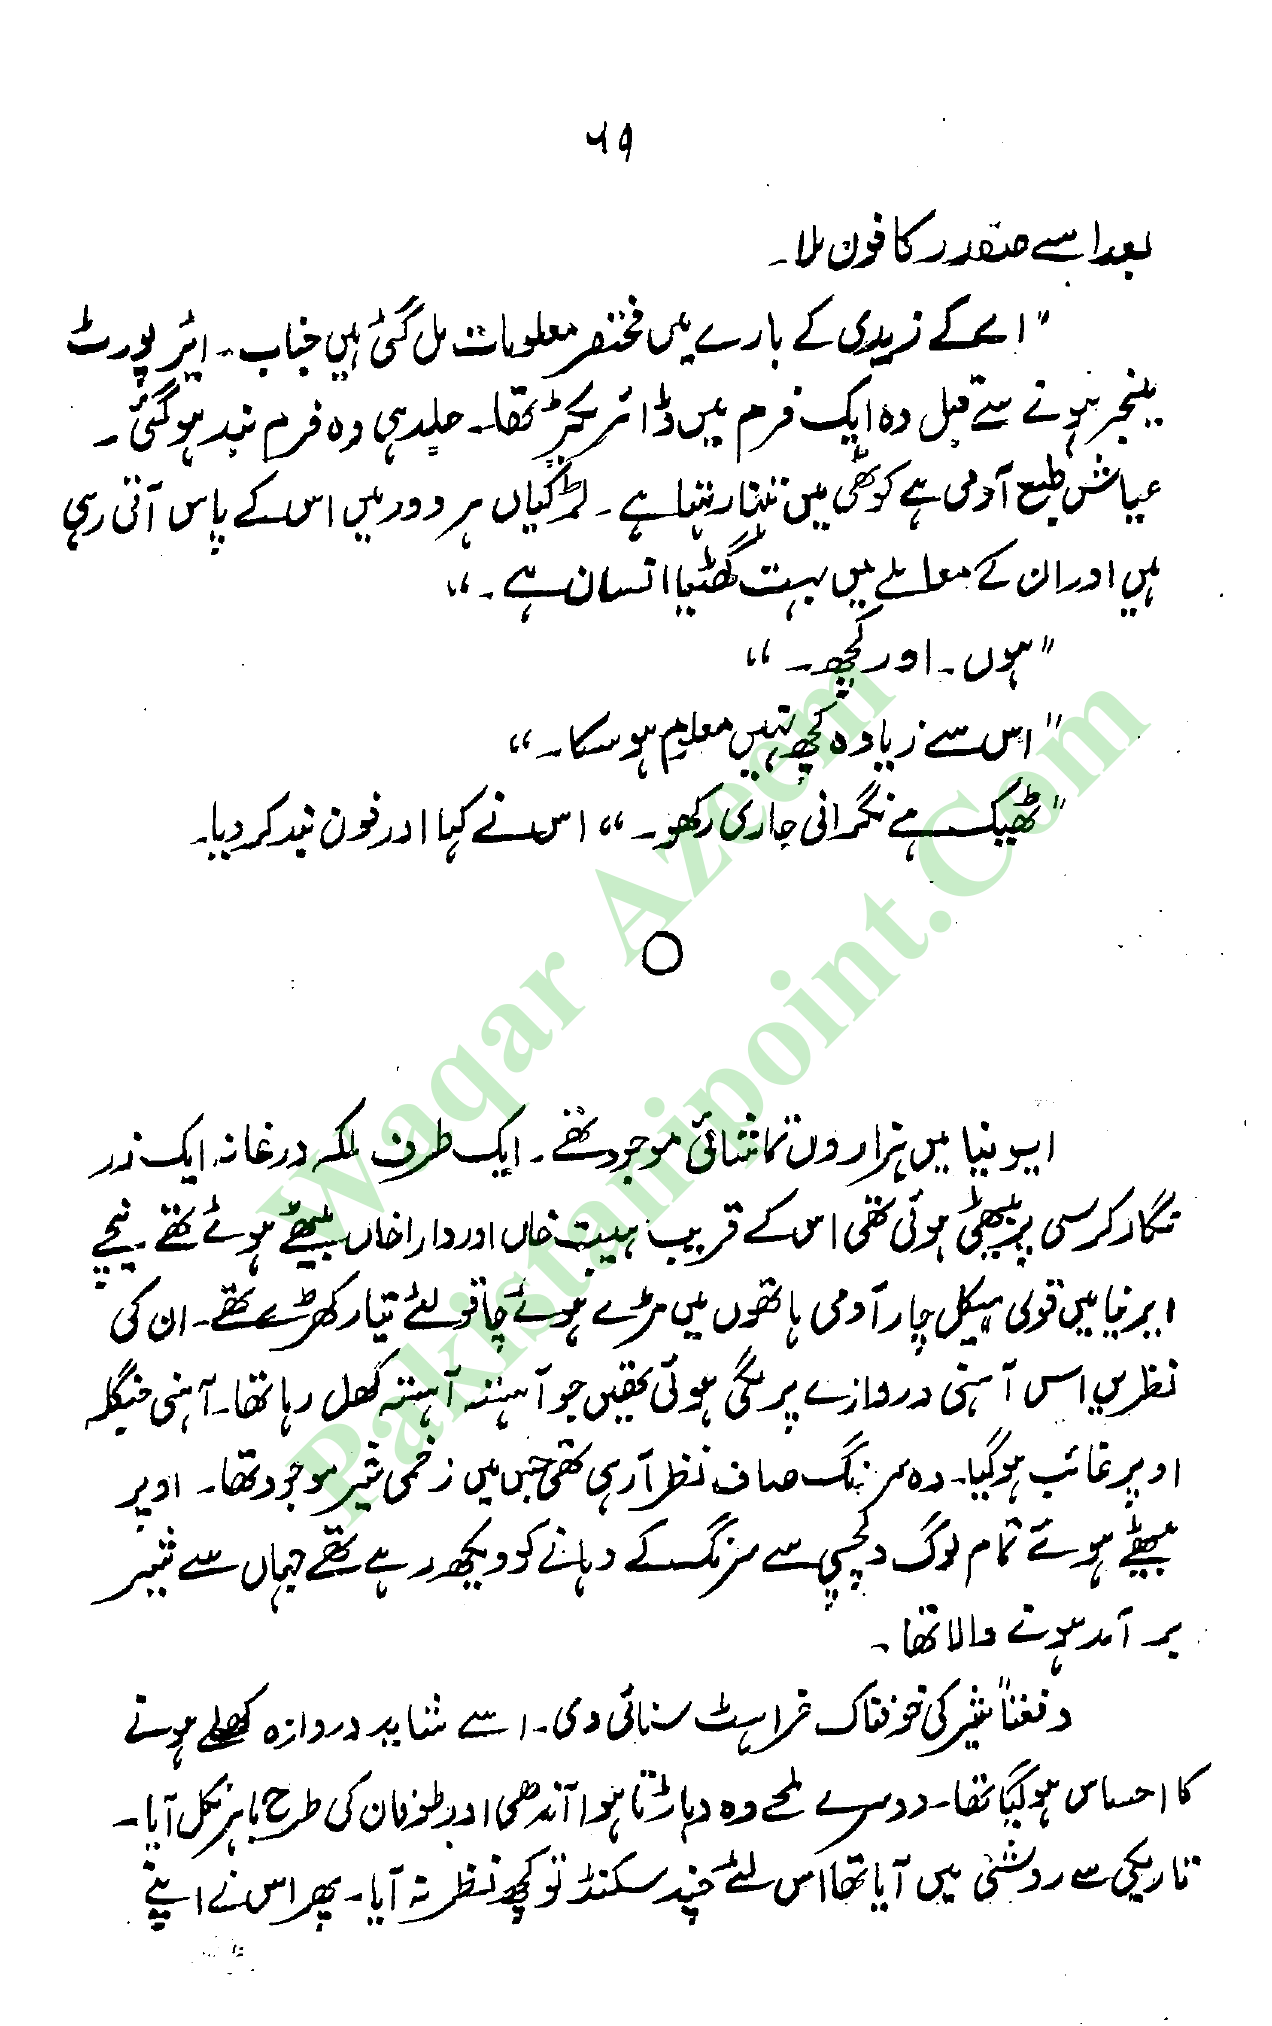 ۶۹
بعد اسے صفدر کا فون ملا۔
"اے کے زیدی کے بارے میں مختصر معلومات مل گئی ہیں جناب۔ ایئر پورٹ
مینجر ہونے سے قبل وہ ایک فرم میں ڈائریکٹر تھا۔ جلد ہی وہ فرم بند ہو گئی۔
عیاش طبع آدمی ہے کوٹھی میں تنہا رہتا ہے۔ لڑکیاں ہر دور میں اس کے پاس آتی رہی
ہیں اور ان کے معاملے میں بہت گھٹیا انسان ہے۔"
"ہوں۔ اور کچھ۔"
"اس سے زیادہ کچھ نہیں معلوم ہو سکا۔"
"ٹھیک ہے نگرانی جاری رکھو۔" اس نے کہا اور فون بند کر دیا۔
ایبونیا میں ہزاروں تماشائی موجود تھے۔ ایک طرف ملکہ درغانہ ایک زر
نگار کرسی پر بیٹھی ہوئی تھی اس کے قریب ہیبت خاں اور دارا خاں بیٹھے ہوئے تھے۔ نیچے
ایرنیا میں قوی ہیکل چار آدمی ہاتھوں میں مڑے ہوئے چاقو لئے تیار کھڑے تھے۔ ان کی
نظریں اس آہنی دروازے پر لگی ہوئی تھیں جو آہستہ آہستہ کھل رہا تھا۔ آہنی جنگلہ
اوپر غائب ہو گیا۔ وہ سرنگ صاف نظر آ رہی تھی جس میں زخمی شیر موجود تھا۔ اوپر
بیٹھے ہوئے تمام لوگ دلچسپی سے سرنگ کے دہانے کو دیکھ رہے تھے جہاں سے شیر
برآمد ہونے والا تھا۔
دفعتاً شیر کی خوفناک غراہٹ سنائی دی۔ اسے شاید دروازہ کھلے ہونے
کا احساس ہو گیا تھا۔ دوسرے لمحے وہ دہاڑتا ہوا آندھی اور طوفان کی طرح باہر نکل آیا۔
تاریکی سے روشنی میں آیا تھا اس لئے چند سکنڈ تو کچھ نظر نہ آیا۔ پھر اس نے اپنے
Waqar Azeem
Pakistanipoint.Com